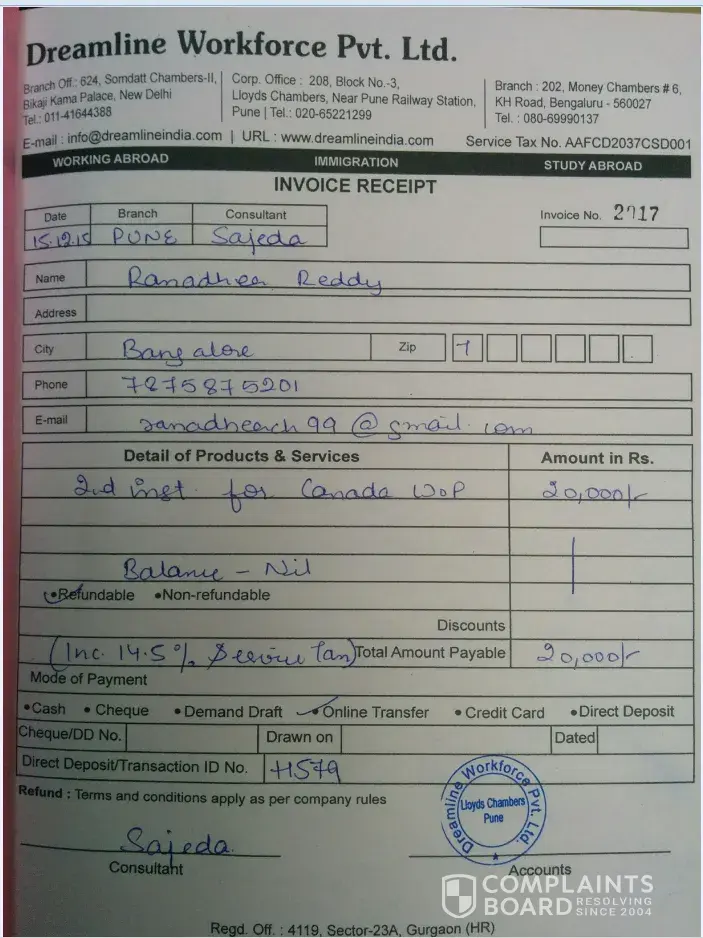 Dreamline Workforce Pvt. Ltd.
Branch Off : 624, Somdatt Chambers-II, Bikaji Kama Palace, New Delhi Tel.: 011-41644388
Corp. Office : 208, Block No.-3, Lloyds Chambers, Near Pune Railway Station, Pune | Tel.: 020-65221299
Branch : 202, Money Chambers # 6, KH Road, Bengaluru - 560027 Tel. : 080-69990137
E-mail : info@dreamlineindia.com | URL : www.dreamlineindia.com Service Tax No. AAFCD2037CSD001
WORKING ABROAD IMMIGRATION STUDY ABROAD
INVOICE RECEIPT
Date Branch Consultant Invoice No. 2917
15.12.15 PUNE Sajeda
Name Ranadheer Reddy
Address
City Bangalore Zip 7
Phone 7875875201
E-mail @gmail.com
Detail of Products & Services Amount in Rs.
2nd inst. for Canada WOP 20,000/-
Balance - Nil
•Refundable •Non-refundable
Discounts
(Inc. 14.5% Service Tax) Total Amount Payable 20,000/-
Mode of Payment
•Cash •Cheque •Demand Draft •Online Transfer •Credit Card •Direct Deposit
Cheque/DD No. Drawn on Dated
Direct Deposit/Transaction ID No. H579
Refund : Terms and conditions apply as per company rules
Dreamline Workforce Pvt. Ltd.
Lloyds Chambers
Pune
Sajeda
Consultant Accounts
COMPLAINTS
BOARD RESOLVING SINCE 2004
Regd. Off. : 4119, Sector-23A, Gurgaon (HR)